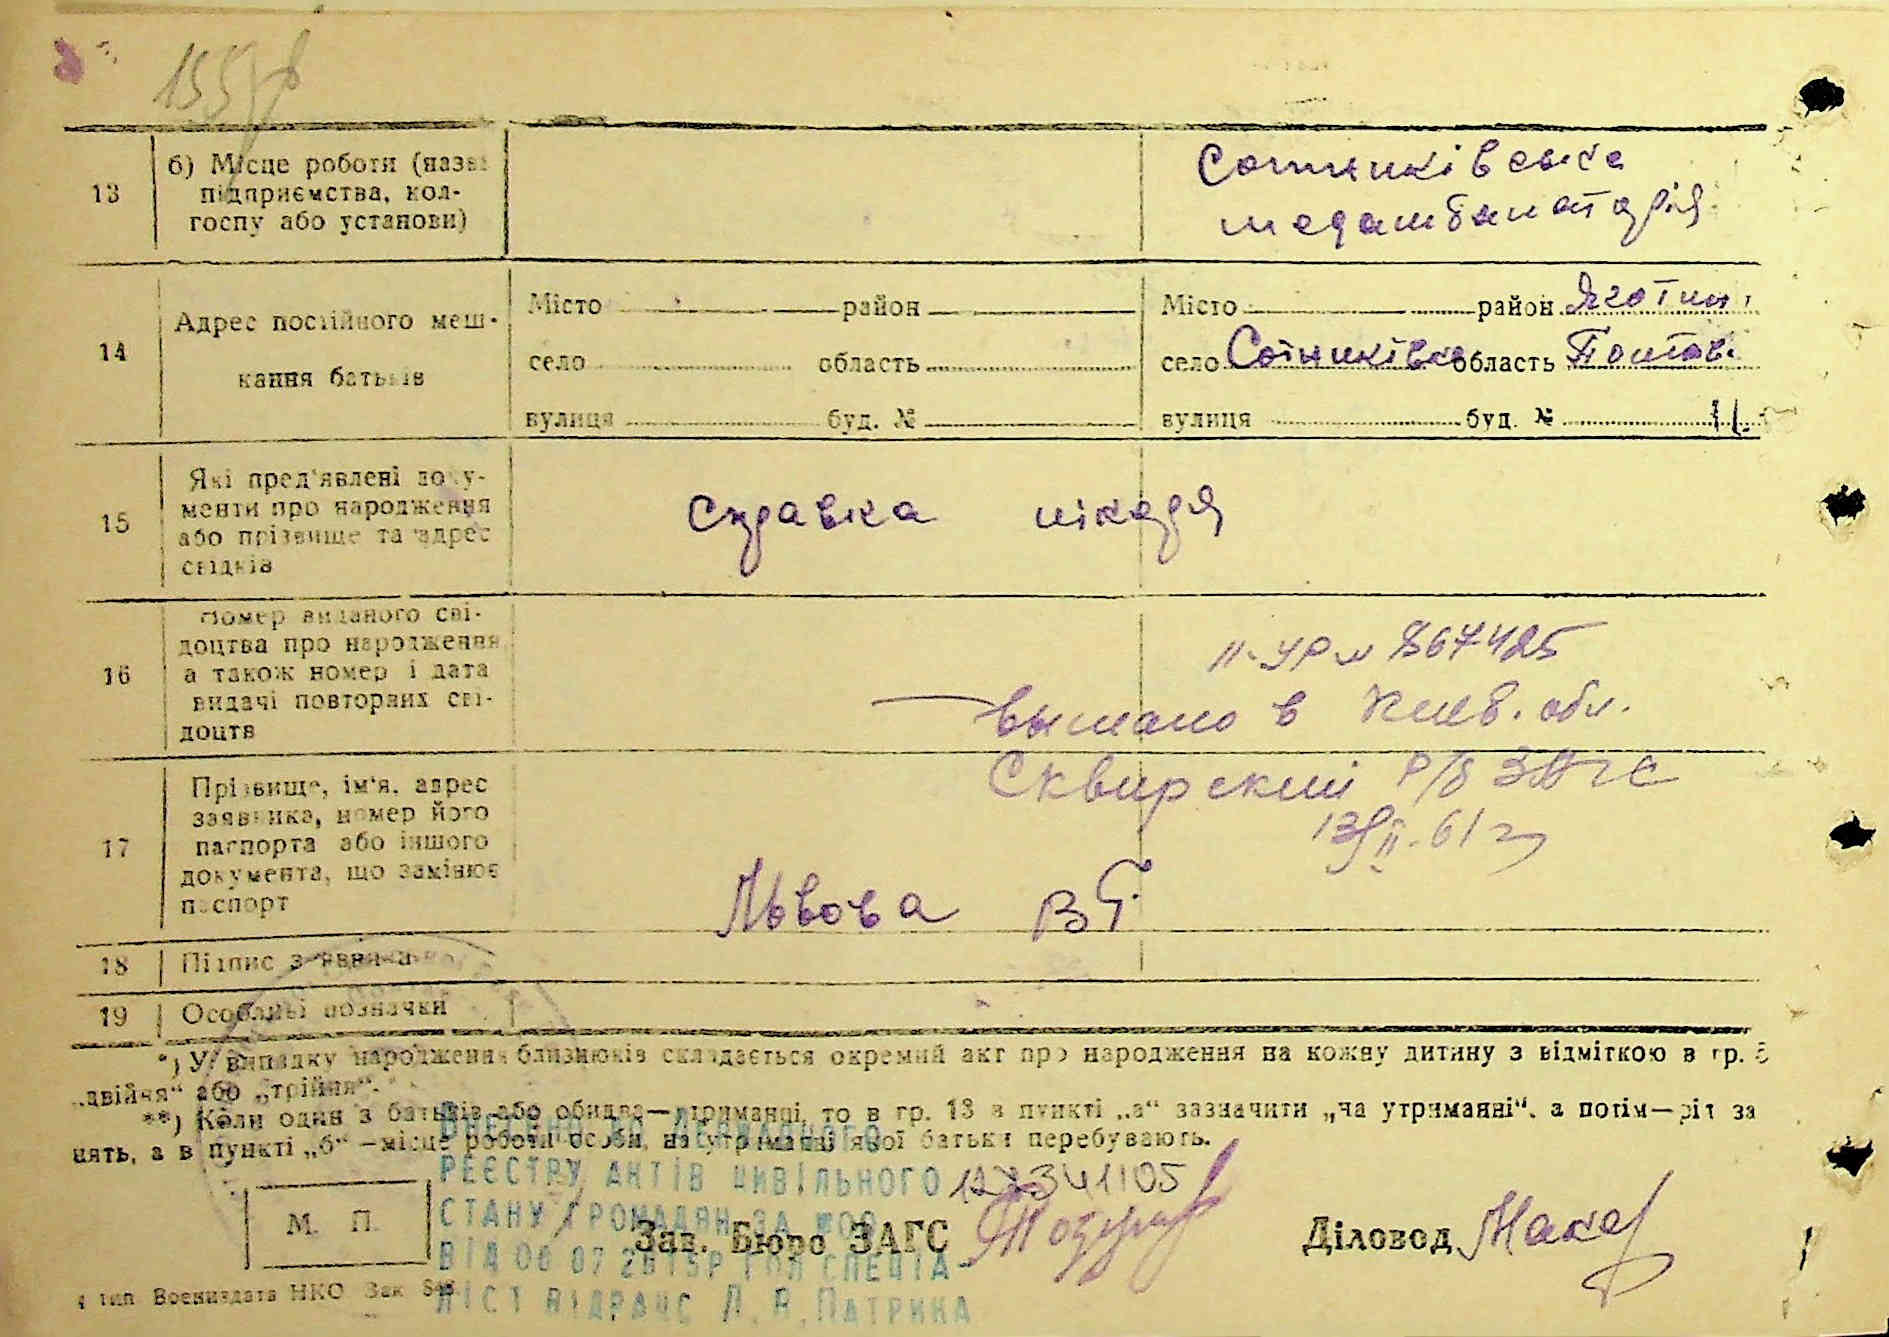 155
13
б) Місце роботи (назва
підприємства, кол-
госпу або установи)
Сотниківська
медамбулаторія
14
Адрес постійного меш-
кання батьків
Місто район
село область
вулиця буд. №
Місто район Яготин
село Сотниківка область Полтав.
вулиця буд. №
15
Які пред'явлені доку-
менти про народження
або прізвище та адрес
свідків
Справка лікаря
16
Номер виданого сві-
доцтва про народження
а також номер і дата
видачі повторних сві-
доцтв
II-УР № 867425
выслано в Киев. обл.
Сквирский р/б ЗАГС
13/II-61 г
17
Прізвище, ім'я, адрес
заявника, номер його
паспорта або іншого
документа, що замінює
паспорт
Львова В Г.
18
Підпис заявника
19
Особливі позначки
*) У випадку народження близнюків складається окремий акт про народження на кожну дитину з відміткою в гр. 5
„двійня“ або „трійня“.
**) Коли один з батьків або обидва—утриманці, то в гр. 13 в пункті „а“ зазначити „на утриманні“, а потім—рід за
нять, а в пункті „б“ —місце роботи особи, на утриманні якої батьки перебувають.
ВНЕСЕНО ДО ДЕРЖАВНОГО
РЕЄСТРУ АКТІВ ЦИВІЛЬНОГО
СТАНУ ГРОМАДЯН ЗА №00
12341105
М. П.
Зав. Бюро ЗАГС
Діловод
ВІД 06 07 2015Р ГОЛ СПЕЦІА-
ЛІСТ ВІДРАЦС Л. В. ПАТРИКА
4 тип Воениздата НКО Зак